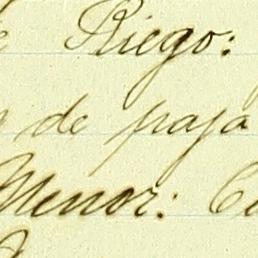 Riego:
de paja
Menor: